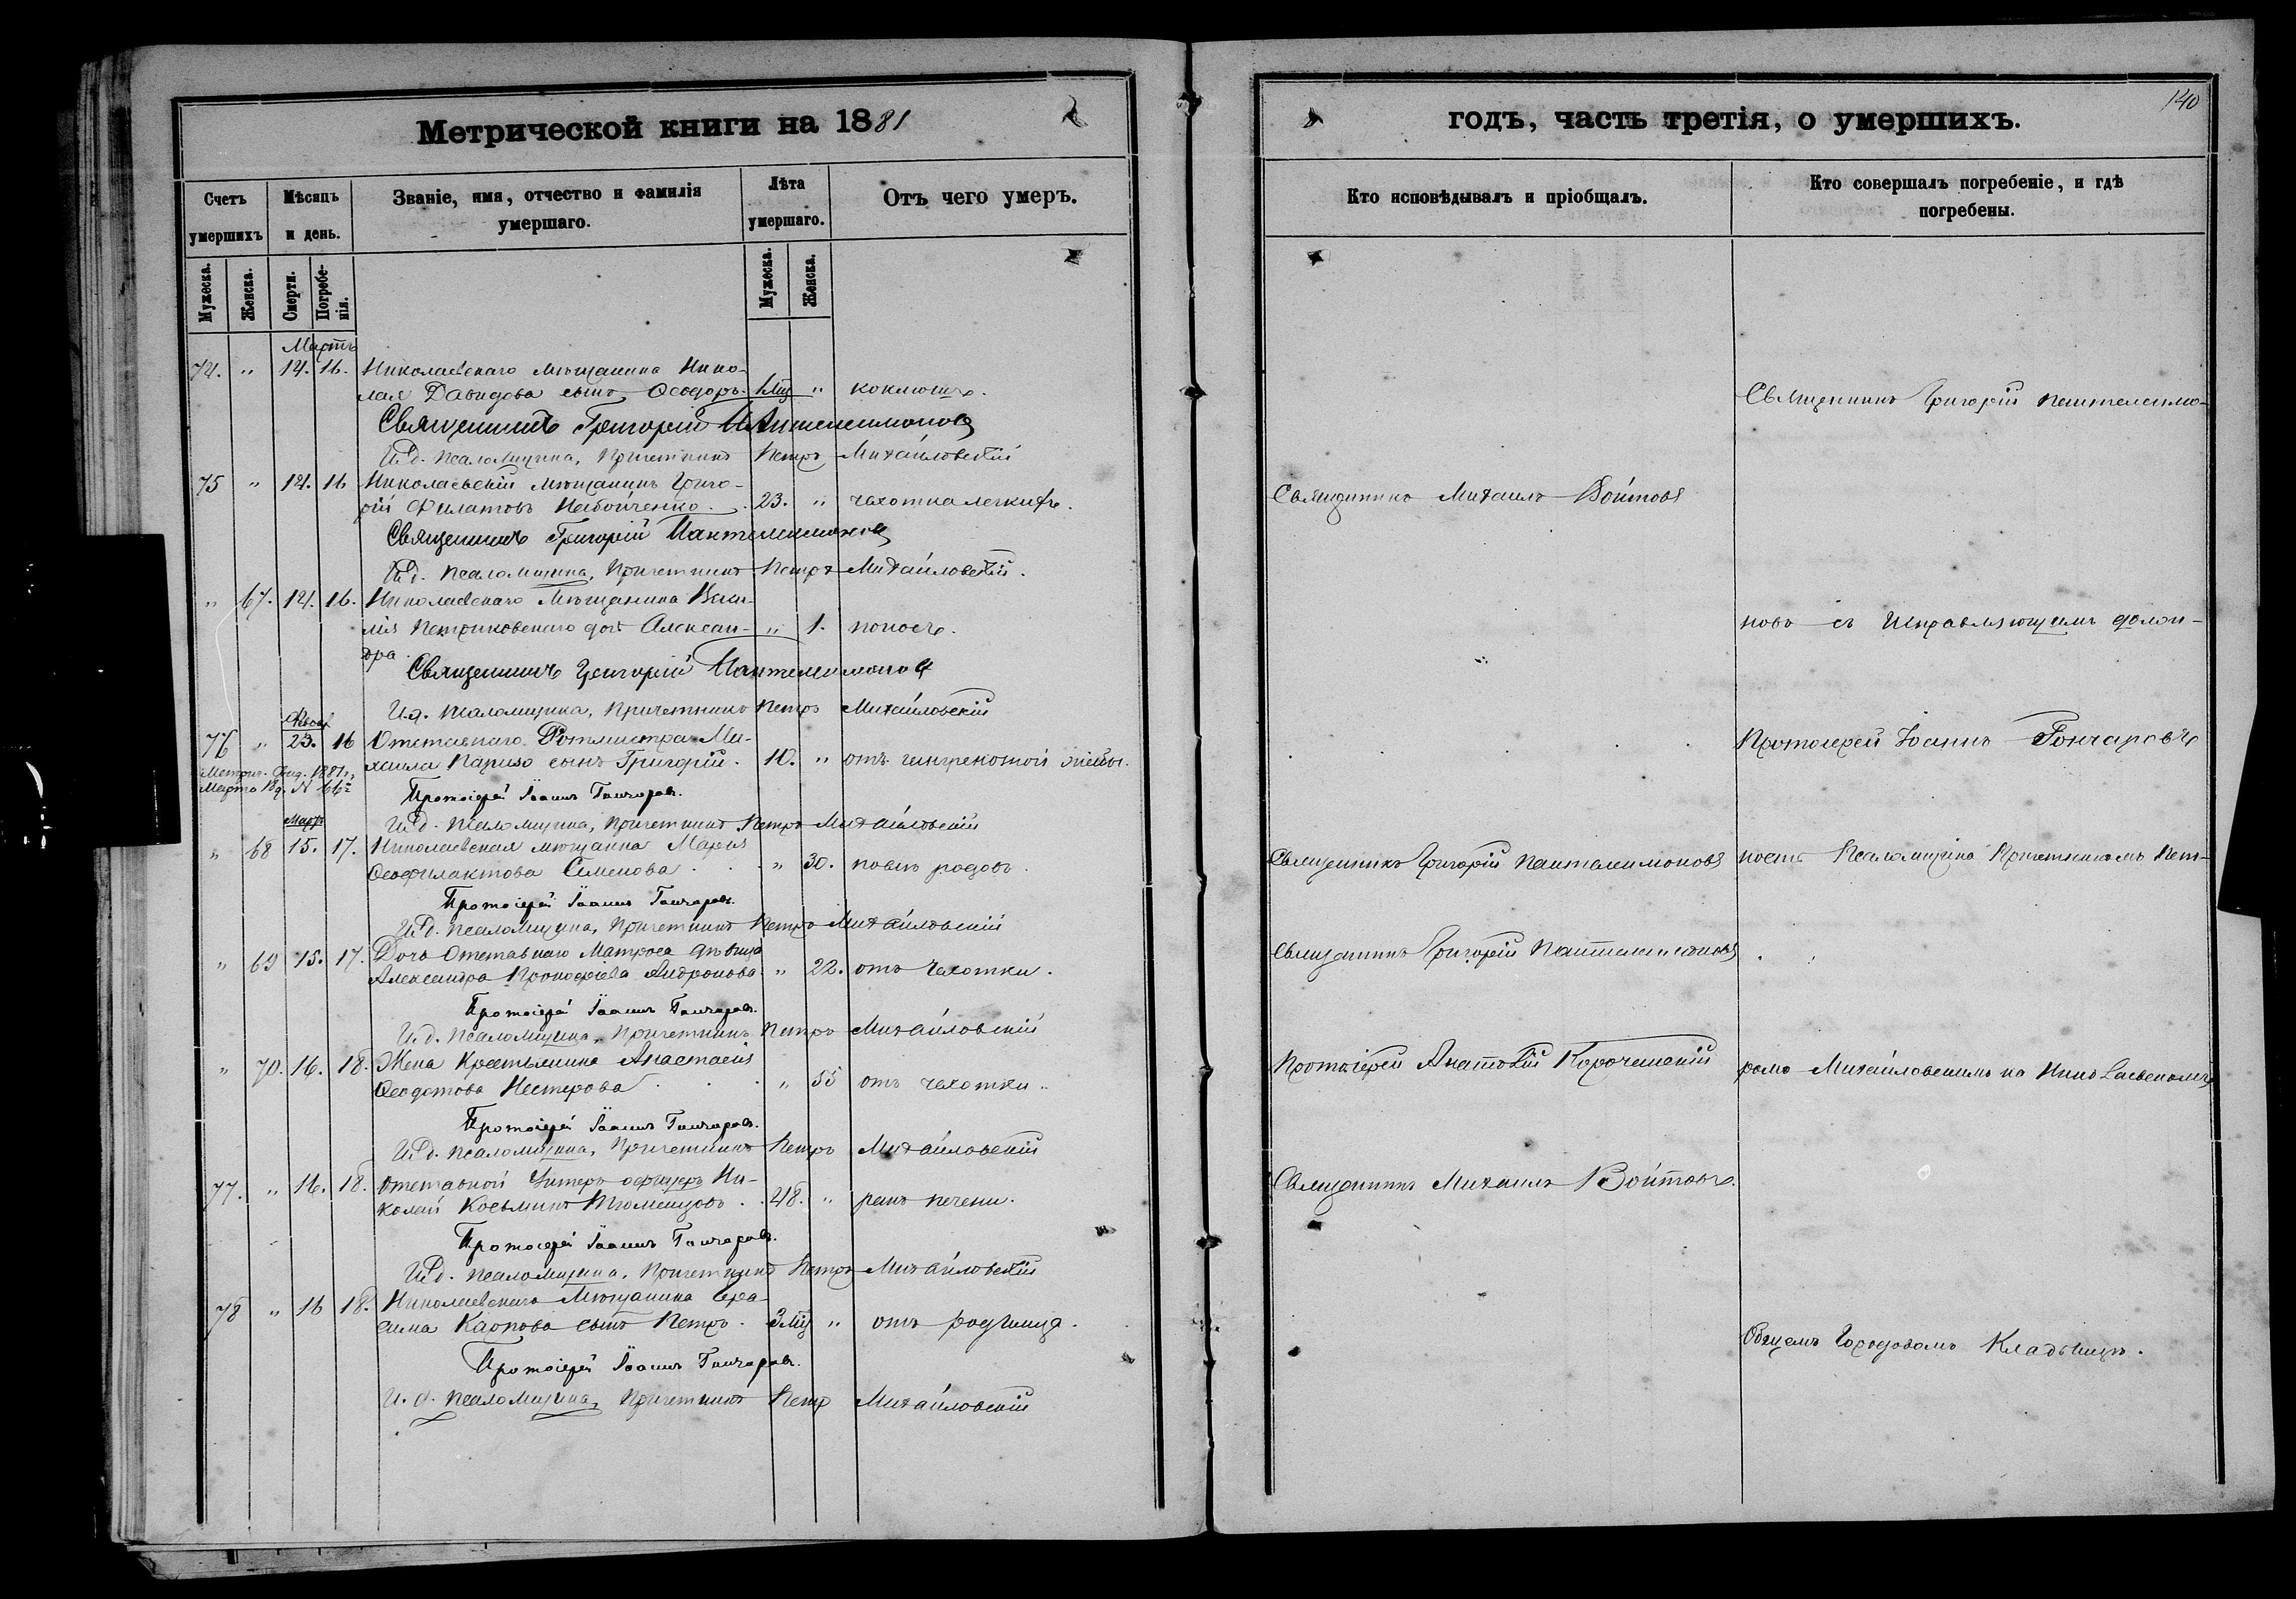 Метрической книги на 1881
Счетъ умершихъ
Мѣсяцъ и день.
Званіе, имя, отчество и фамилія умершаго.
Лѣта умершаго.
Отъ чего умеръ.
Мужеска.
Женска.
Смерти.
Погребенія.
Мужеска.
Женска.
Мартъ
74. " 14. 16. Николаевскаго мѣщанина Нико-
лая Давидова сынъ Ѳеодоръ. " коклюшъ.
Священникъ Григорій Пантелеимоновъ
И. д. псаломщика, Причетникъ Петръ Михайловскій
75 " 14. 16 Николаевскій мѣщанинъ Григо-
рій Филатовъ Небойченко. 23. " чахотка легкихъ.
Священникъ Григорій Пантелеимоновъ
И. д. псаломщика, Причетникъ Петръ Михайловскій.
" 67. 14. 16. Николаевскаго Мѣщанина
Петриковскаго дочь Алексан- " 1. поносъ.
дра.
Священникъ Григорій Пантелеимоновъ
И. д. псаломщика, Причетникъ Петръ Михайловскій
Февр.
76 " 23. 16 Отставнаго Ротмистра Ми-
хаила сынъ Григорій. 10. " отъ
Марта № 66
Протоіерей Іоаннъ Гончаровъ.
Мартъ
И. д. псаломщика, Причетникъ Петръ Михайловскій
" 68 15. 17. Николаевская мѣщанка Марія
Ѳеофилактова Семенова " 30. родовъ.
Протоіерей Іоаннъ Гончаровъ.
И. д. псаломщика, Причетникъ Петръ Михайловскій
" 69 15. 17. Дочь Отставнаго Матроса дѣвица
Александра Прокофіева Андронова " 22. отъ чахотки.
Протоіерей Іоаннъ Гончаровъ.
И. д. псаломщика, Причетникъ Петръ Михайловскій
" 70. 16. 18. Жена Крестьянина Анастасія
Ѳеодотова Нестерова " 55 отъ чахотки.
Протоіерей Іоаннъ Гончаровъ.
И. д. псаломщика, Причетникъ Петръ Михайловскій
77. " 16. 18. Отставной Унтеръ-офицеръ Ни-
колай Косьминъ 48. " ракъ печени.
Протоіерей Іоаннъ Гончаровъ.
И. д. псаломщика, Причетникъ Петръ Михайловскій
78 " 16 18. Николаевскаго Мѣщанина Гера-
сима Карпова сынъ Петръ. " отъ родимца.
Протоіерей Іоаннъ Гончаровъ.
И. д. псаломщика, Причетникъ Петръ Михайловскій
140
годъ, часть третія, о умершихъ.
Кто исповѣдывалъ и пріобщалъ.
Кто совершалъ погребеніе, и гдѣ погребены.
Священникъ Григорій Пантелеимо-
Священникъ Михаилъ Войтовъ
новъ съ Исправляющимъ долж-
Протоіерей Іоаннъ Гончаровъ
Священникъ Григорій Пантелеимоновъ
ность Псаломщика Причетникомъ Пет-
Священникъ Григорій Пантелеимоновъ
Протоіерей Анатолій
ромъ Михайловскимъ на Николаевскомъ
Священникъ Михаилъ Войтовъ.
Общемъ Городовомъ Кладбищѣ.